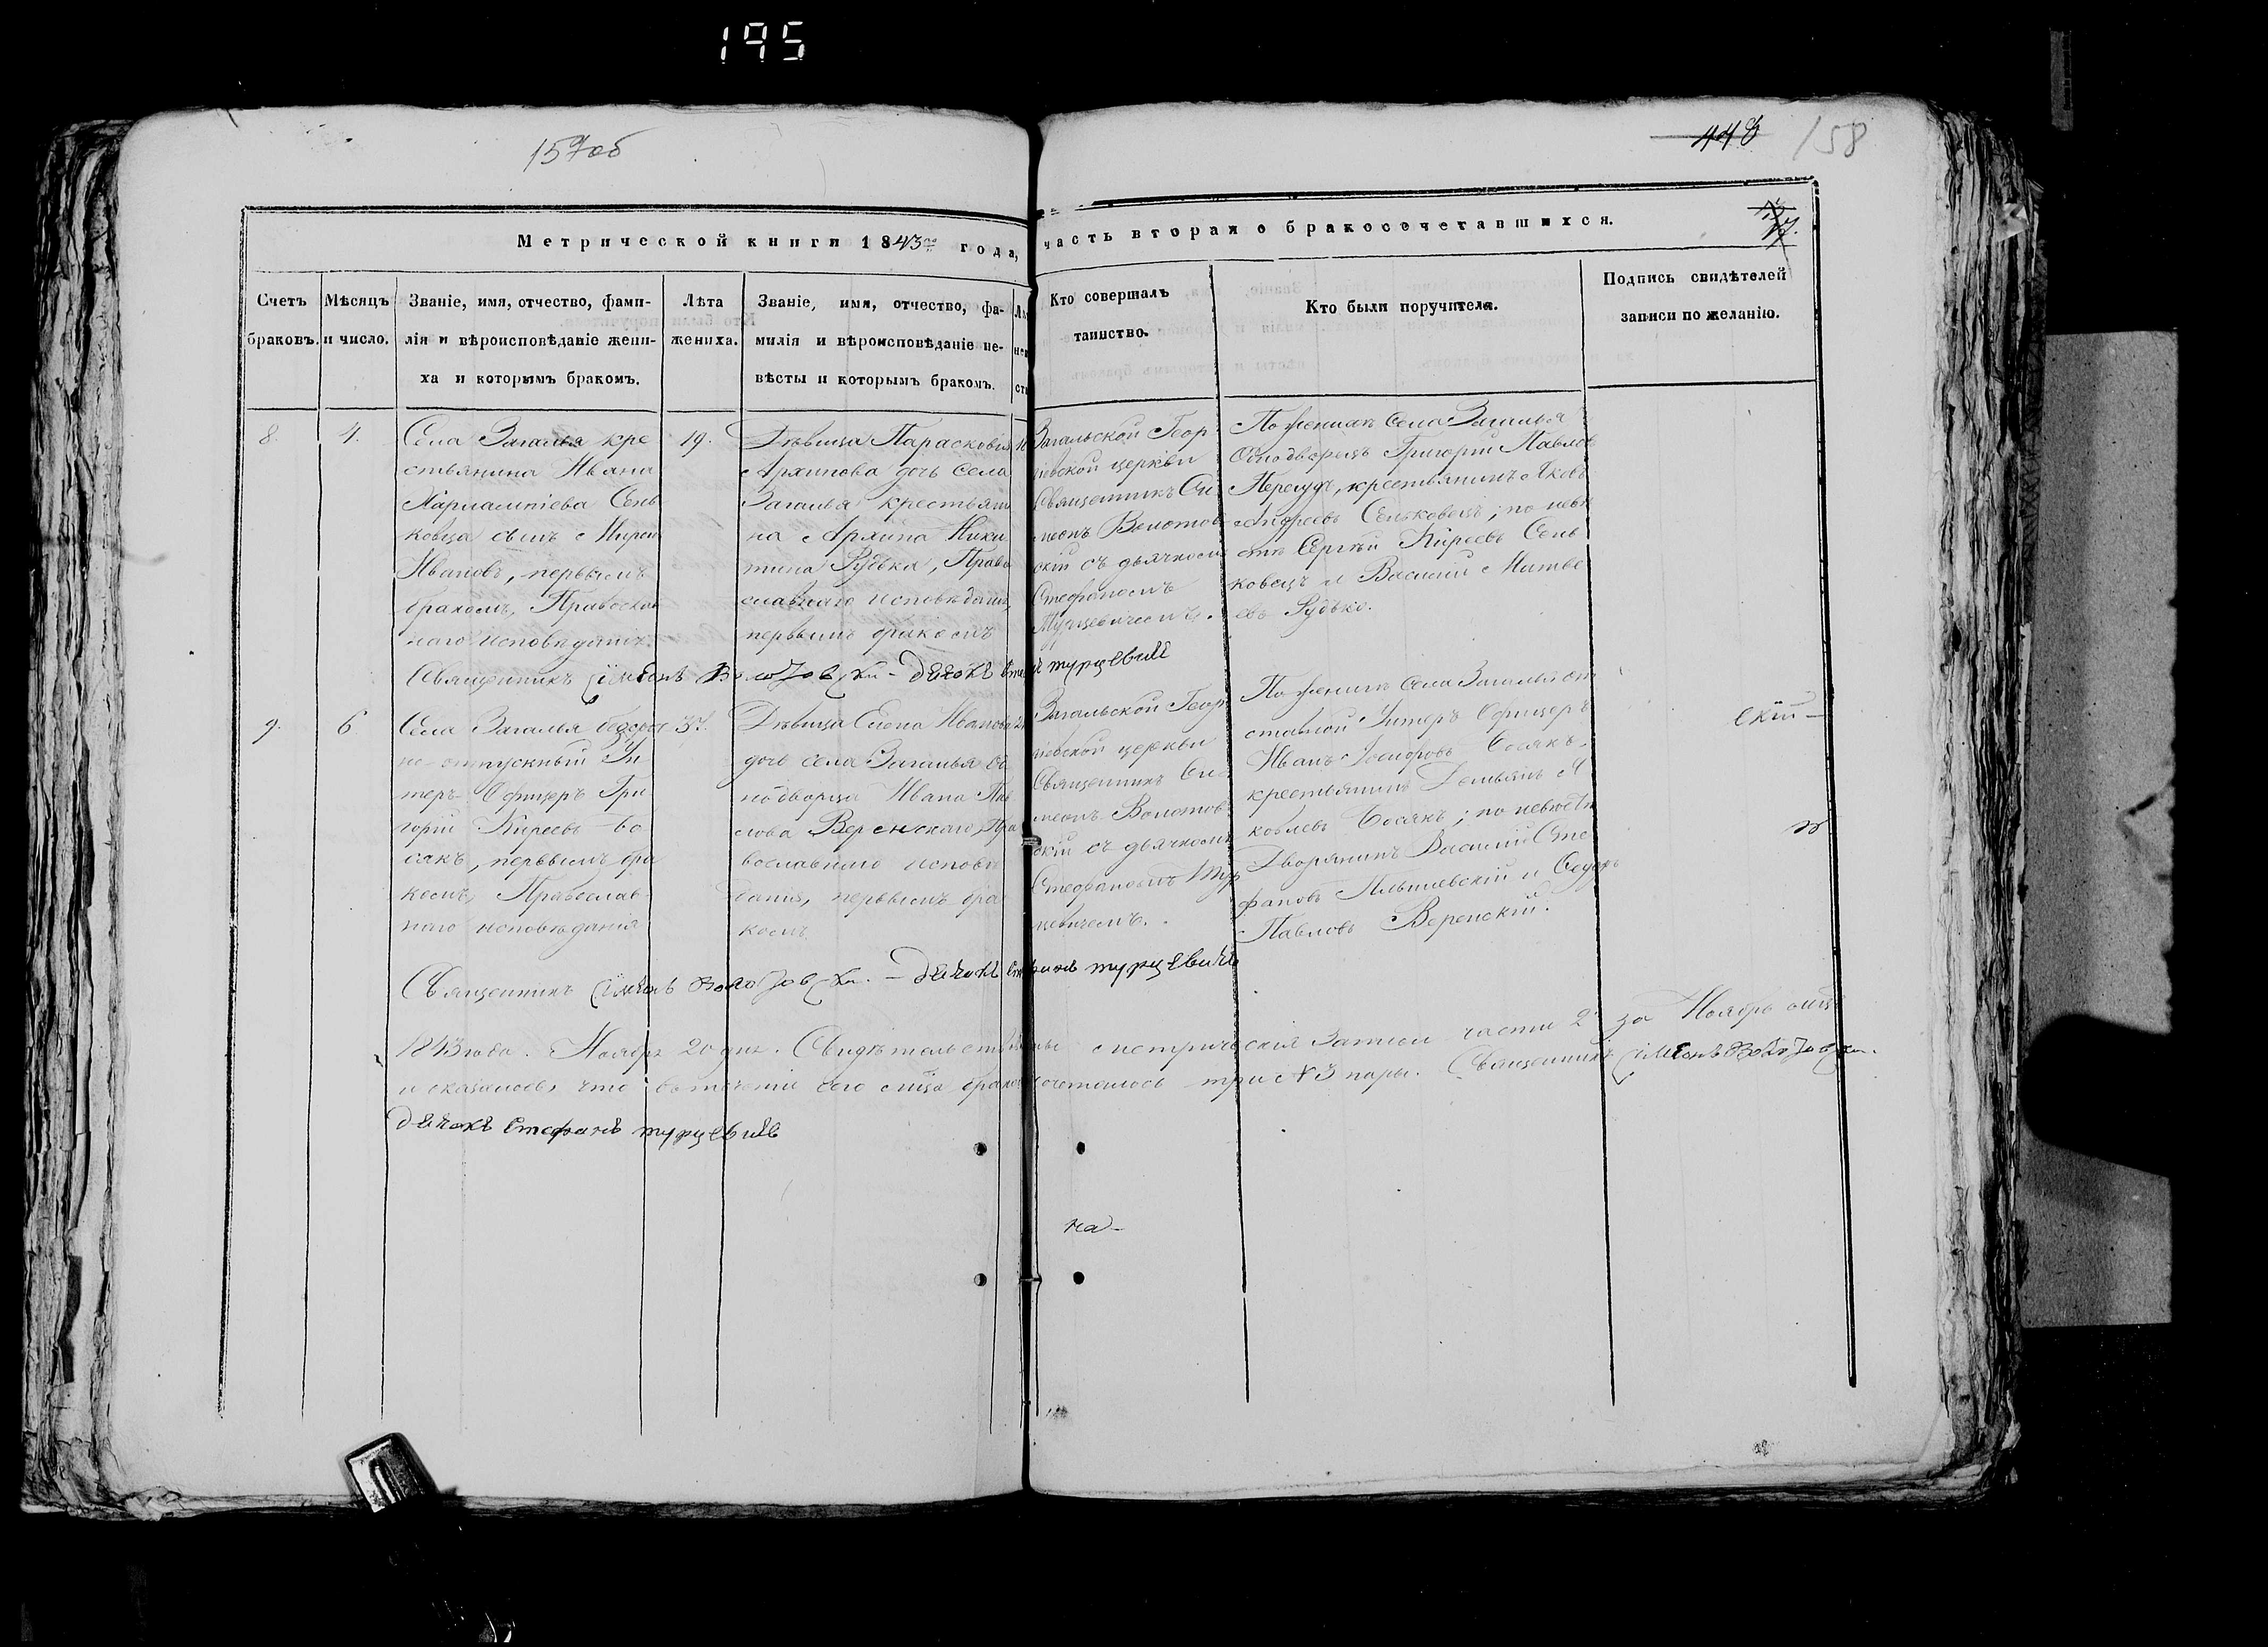 195
157об
448 158
Метрической книги 1843го года, часть вторая о бракосочетавшихся.
Счетъ браковъ.
Мѣсяцъ и число.
Званіе, имя, отчество, фами-
лія и вѣроисповѣданіе жени-
ха и которымъ бракомъ.
Лѣта
жениха.
Званіе, имя, отчество, фа-
милія и вѣроисповѣданіе не-
вѣсты и которымъ бракомъ.
Кто совершалъ
таинство.
Кто были поручители.
Подпись свидѣтелей
записи по желанію.
8.
4.
Села Загалья кре
стьянина Ивана
Харлампіева Сень
ковца сынъ
Ивановъ, первымъ
бракомъ, Православ
наго исповѣданія.
19.
Дѣвица Парасковія
Архипова дочь села
Загалья крестьяни
на Архипа Ники
тина Рудька, Право
славнаго исповѣданія,
первымъ бракомъ
Загальской Геор
гіевской церкви
Священникъ Си
меонъ Волотов
скій съ дьячкомъ
Стефаномъ
Турцевичемъ.
По женихѣ села Загалья
Однодворецъ Григорій Павлов
крестьянинъ Яковъ
Андреевъ Сеньковецъ; по невѣ
стѣ Сергѣй Киреевъ Сень
ковецъ и Василій Матве
евъ Рудько.
Священникъ Симеонъ Волотовски - дячокъ Стефанъ турцевичъ
9.
6
Села Загалья безсроч
но-отпускный Ун
теръ-Офицеръ Гри
горій Киреевъ Бо
сякъ, первымъ бра
комъ, Православ
наго исповѣданія
37.
Дѣвица Елена Иванова
дочь села Загалья од
нодворца Ивана Пав
лова Веренскаго, Пра
вославнаго исповѣ
данія, первымъ бра
комъ.
Загальской Геор
гіевской церкви
Священникъ Си
меонъ Волотов
скій съ дьячкомъ
Стефаномъ Тур
цевичемъ.
По женихѣ села Загалья от
ставной Унтеръ Офицеръ
Иванъ Іосифовъ Босякъ,
крестьянинъ Демьянъ Я
ковлевъ Босякъ; по невѣстѣ
Дворянинъ Василій Сте
фановъ и Ѳедоръ
Павловъ Веренскій.
скій -
Священникъ Симеонъ Волотовски. - дячокъ Стефанъ турцевичъ
1843 года. Ноября 20 дня. Свидѣтельствованы метрическія записи части 2й за Ноябрь мѣсяцъ
и оказалось, что въ теченіи сего мѣсяца бракосочеталось три №3 пары. Священникъ Симеонъ Волотовски.
дячокъ Стефанъ турцевичъ
на-